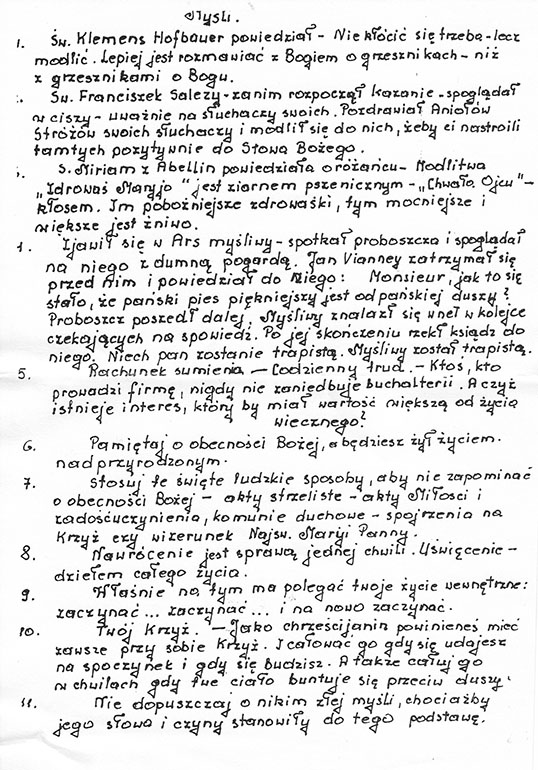 Myśli.
1. Św. Klemens Hofbauer powiedział - Nie kłócić się trzeba - lecz
modlić. Lepiej jest rozmawiać z Bogiem o grzesznikach - niż
z grzesznikami o Bogu.
Św. Franciszek Salezy - zanim rozpoczął kazanie - spoglądał
w ciszy - uważnie na słuchaczy swoich. Pozdrawiał Aniołów
Stróżów swoich słuchaczy i modlił się do nich, żeby ci nastroili
tamtych pozytywnie do Słowa Bożego.
S. Miriam z Abellin powiedziała o różańcu - Modlitwa
„Zdrowaś Maryjo" jest ziarnem pszenicznym - „Chwała Ojcu" -
kłosem. Im pobożniejsze zdrowaśki, tym mocniejsze i
większe jest żniwo.
4. Zjawił się w Ars myśliwy - spotkał proboszcza i spoglądał
na niego z dumną pogardą. Jan Vianney zatrzymał się
przed Nim i powiedział do Niego: Monsieur, jak to się
stało, że pański pies piękniejszy jest od pańskiej duszy?
Proboszcz poszedł dalej. Myśliwy znalazł się wnet w kolejce
czekających na spowiedź. Po jej skończeniu rzekł ksiądz do
niego. Niech pan zostanie trapistą. Myśliwy został trapistą.
5. Rachunek sumienia — Codzienny trud. - Ktoś, kto
prowadzi firmę, nigdy nie zaniedbuje buchalterii. A czyż
istnieje interes, który by miał wartość większą od życia
wiecznego?
6. Pamiętaj o obecności Bożej, a będziesz żył życiem.
nadprzyrodzonym.
7. Stosuj te święte ludzkie sposoby, aby nie zapominać
o obecności Bożej - akty strzeliste - akty Miłości i
zadośćuczynienia, komunie duchowe - spojrzenia na
Krzyż czy wizerunek Najśw. Maryi Panny.
8. Nawrócenie jest sprawą jednej chwili. Uświęcenie -
dziełem całego życia.
9. Właśnie na tym ma polegać twoje życie wewnętrzne:
zaczynać... zaczynać... i na nowo zaczynać.
10. Twój Krzyż. - Jako chrześcijanin powinieneś mieć
zawsze przy sobie Krzyż. I całować go gdy się udajesz
na spoczynek i gdy się budzisz. A także całuj go
w chwilach gdy twe ciało buntuje się przeciw duszy.
11. Nie dopuszczaj o nikim złej myśli, chociażby
jego słowa i czyny stanowiły do tego podstawę.